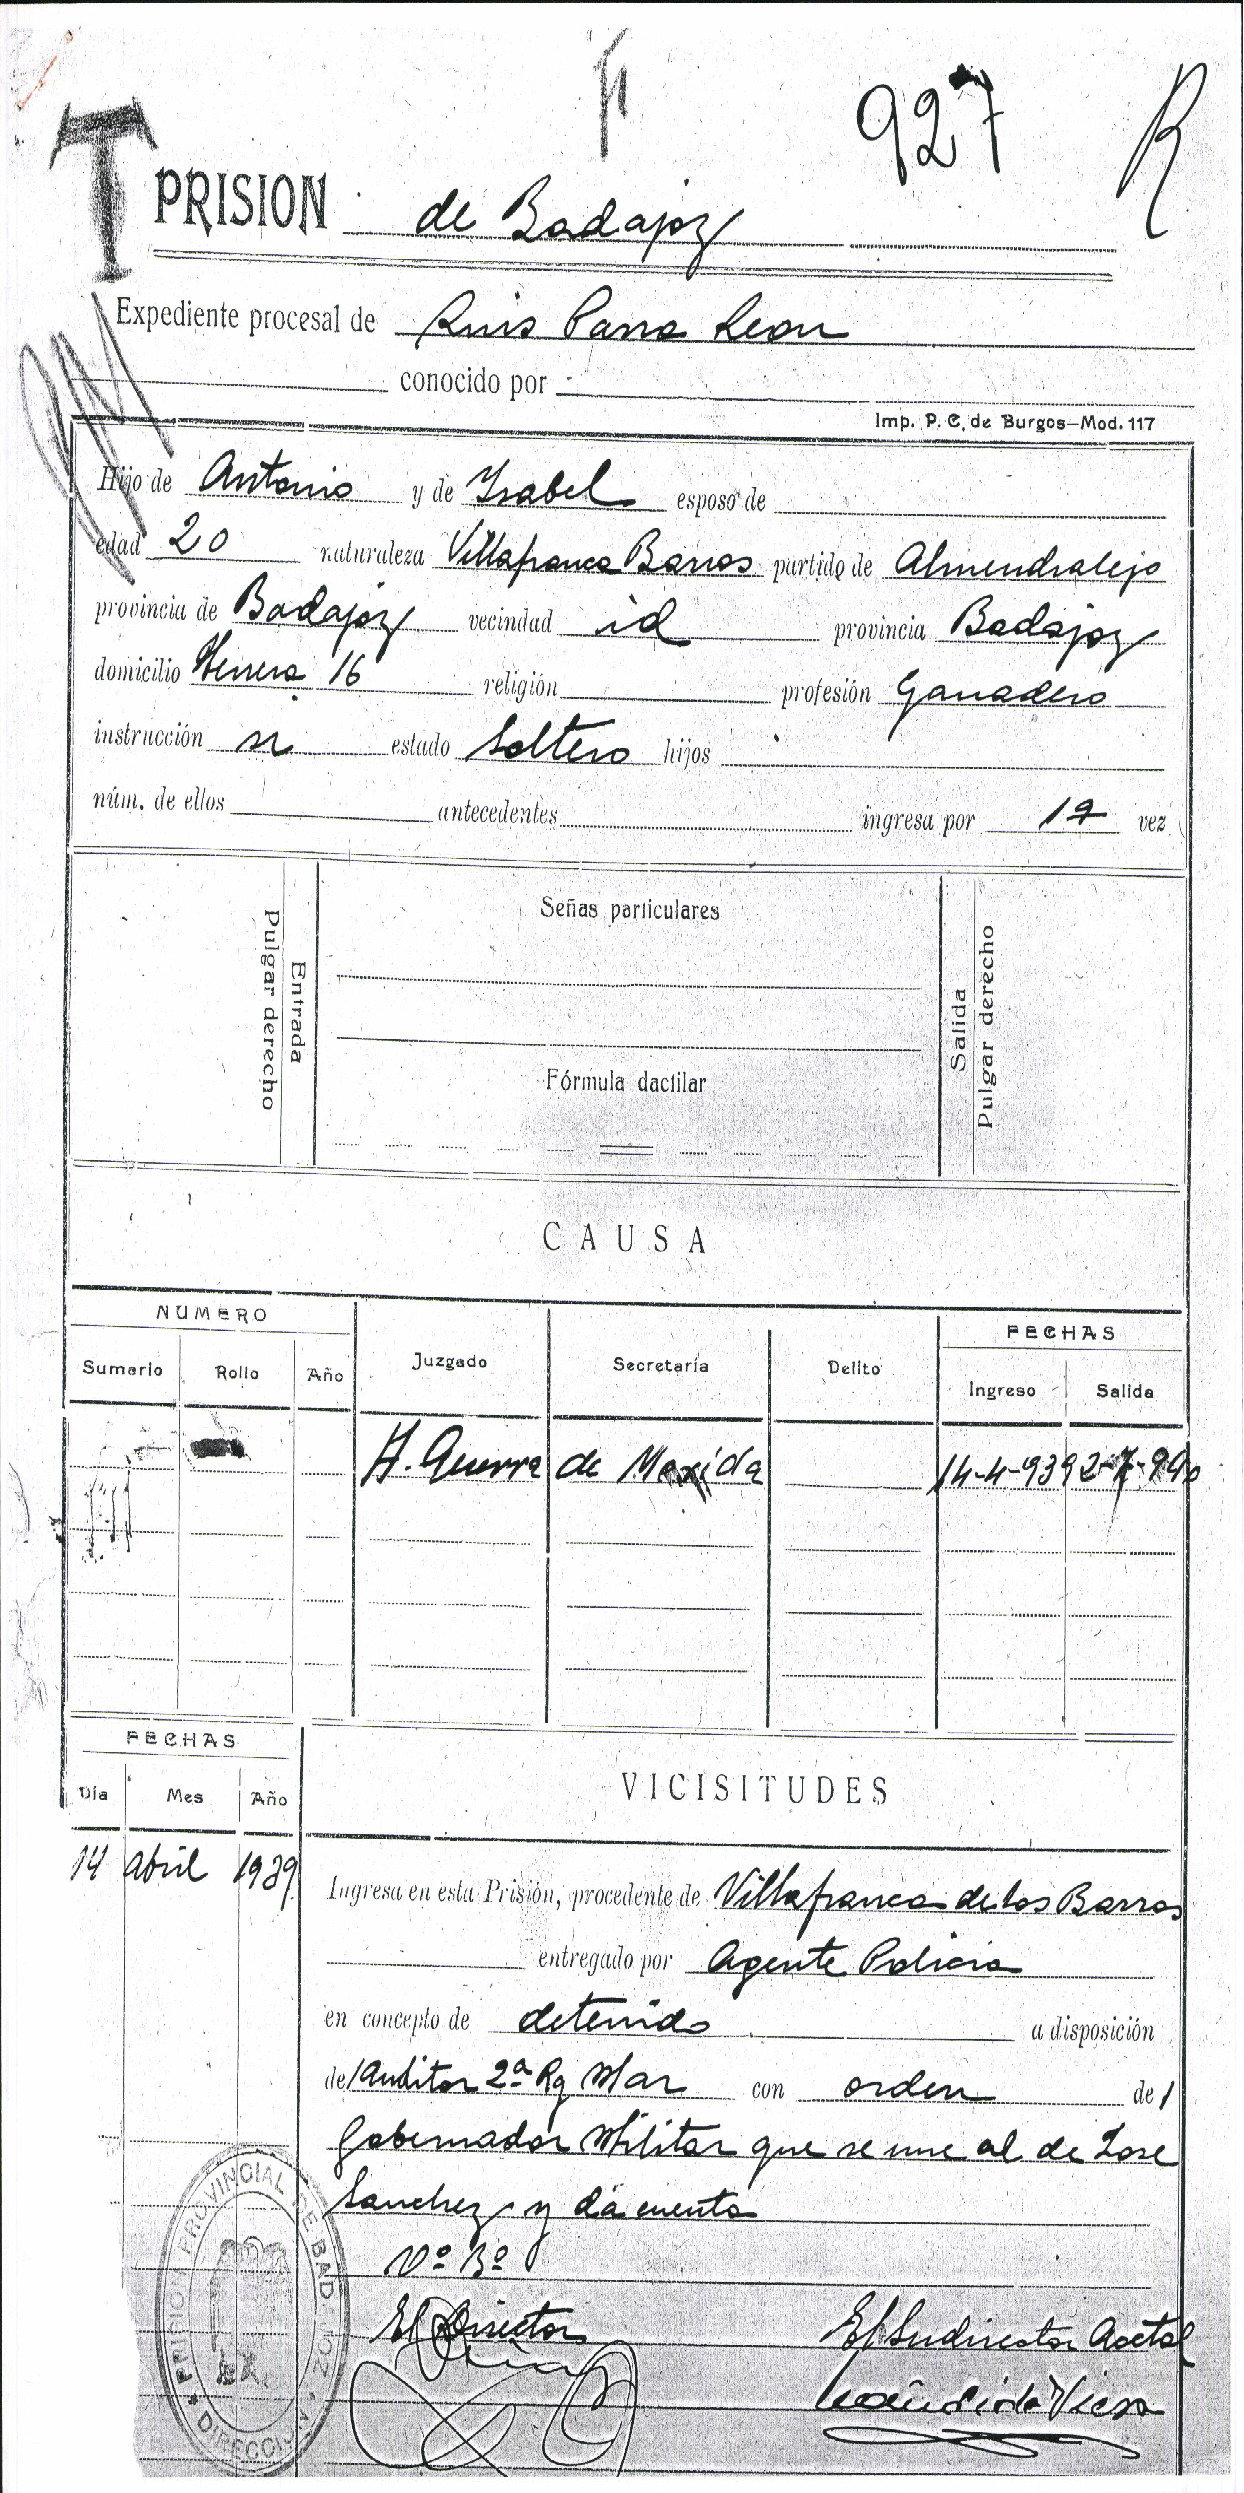 T
927
R
PRISION de Badajoz
Expediente procesal de Luis Parra Leon
conocido por -
Imp. P. C. de Burgos—Mod. 117
Hijo de Antonio y de Isabel esposo de
edad 20 naturaleza Villafranca Barros partido de Almendralejo
provincia de Badajoz vecindad id provincia Badajoz
domicilio Herrera 16 religión profesión Ganadero
instrucción si estado Soltero hijos
núm. de ellos antecedentes ingresa por 1ª vez
Pulgar derecho
Entrada
Señas particulares
Fórmula dactilar
Salida
Pulgar derecho
CAUSA
NUMERO FECHAS
Sumario Rollo Año Juzgado Secretaría Delito Ingreso Salida
A. Guerra de Merida 14-4-939 2-7-940
FECHAS
Día Mes Año VICISITUDES
14 abril 1939 Ingresa en esta Prisión, procedente de Villafranca de los Barros
entregado por Agente Policia
en concepto de detenido a disposición
del Auditor 2ª Rg Mar con orden del
Gobernador Militar que se une al de Jose
Sanchez y dá cuenta
Vº Bº
El Director El Sudirector Acctal
PRISION PROVINCIAL DE BADAJOZ
DIRECCION